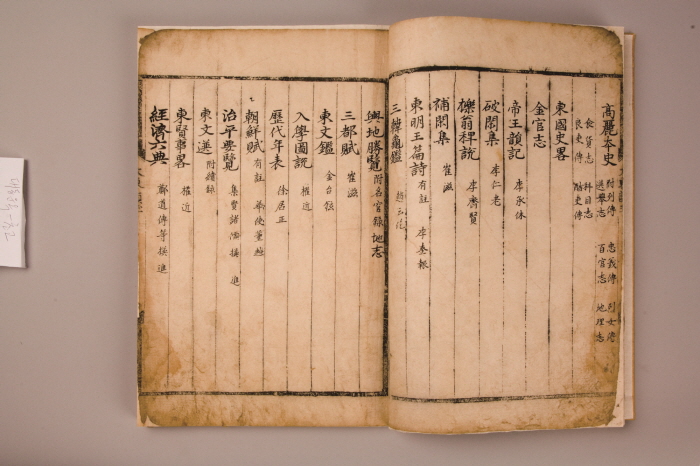 高麗本史
附列傳 忠義傳 列女傳
選擧志 百官志 地理志
食貨志 科目志
良吏傳 酷吏傳
東國史畧
金官志
帝王韻記 李承休
破閑集 李仁老
櫟翁稗說 李齊賢
補閑集 崔滋
東明王篇詩 有註 李奎報
三韓龜鑑 趙云仡
輿地勝覽 附名官錄地志
三都賦 崔滋
東文鑑 金台鉉
入學圖說 權近
歷代年表 徐居正
朝鮮賦 有註 華使董越
治平要覽 集賢諸儒撰進
東文選 附續錄
東賢事畧 權近
經濟六典 鄭道傳等撰進